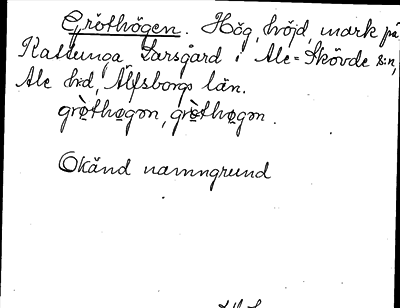 Gröthögen. Hög, höjd, mark på
Kattunga Larsgård i Ale-Skövde s:n,
Ale hd, Älfsborgs län.
grö̀thøgən, grè̀thøgən.
Okänd namngrund